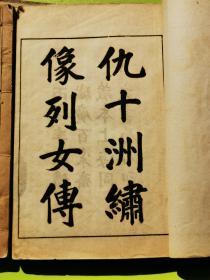 仇十洲繡
像列女傳